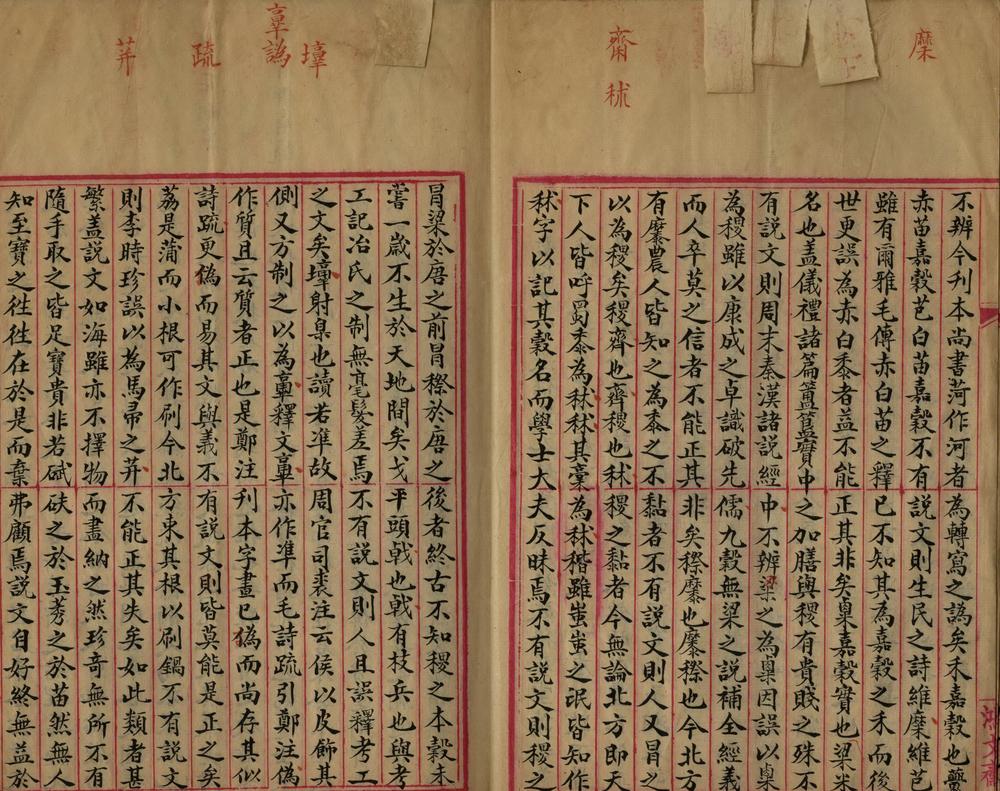 穈
齋
秫
不辨今刊本尚書菏作河者為轉寫之譌矣禾嘉穀也虋
赤苗嘉穀芑白苗嘉穀不有說文則生民之詩維穈維芑
雖有爾雅毛傳赤白苗之釋已不知其為嘉穀之禾而後
世更誤為赤白黍者益不能正其非矣稟嘉穀實也粱米
名也盖儀禮諸篇簠簋實中之加膳與稷有貴賤之殊不
有說文則周末秦漢諸說經中不辨粱之為稟因誤以稟
為稷雖以康成之卓識破先儒九穀無粱之說補全經義
而人卒莫之信者不能正其非矣穄穈也穈穄也今北方
有穈農人皆知之為黍之不黏者不有說文則人又冒之
以為稷矣稷齋也齋稷也秫稷之黏者今無論北方即天
下人皆呼蜀黍為秫秫其稾為秫稭雖蚩蚩之氓皆知作
秫字以記其穀名而學士大夫反昧焉不有說文則稷之
疏
冒粱於唐之前冒穄於唐之後者終古不知稷之本穀未
嘗一歲不生於天地間矣戈平頭戟也戟有枝兵也與考
工記冶氏之制無毫髮差焉不有說文則人且誤釋考工
之文矣墇射臬也讀若准故周官司裘注云侯以皮飾其
側又方制之以為辜釋文辜亦作准而毛詩疏引鄭注偽
作質且云質者正也是鄭注刊本字畫已偽而尚存其似
詩疏更偽而易其文與義不有說文則皆莫能是正之矣
荔是蒲而小根可作刷今北方束其根以刷鍋不有說文
則李時珍誤以為馬帚之茾不能正其失矣如此類者甚
繁盖說文如海雖亦不擇物而畫納之然珍奇無所不有
隨手取之皆足寶貴非若碔砆之於玉莠之於苗然無人
知至寶之徃徃在於是而棄弗顧焉說文自好終無益於